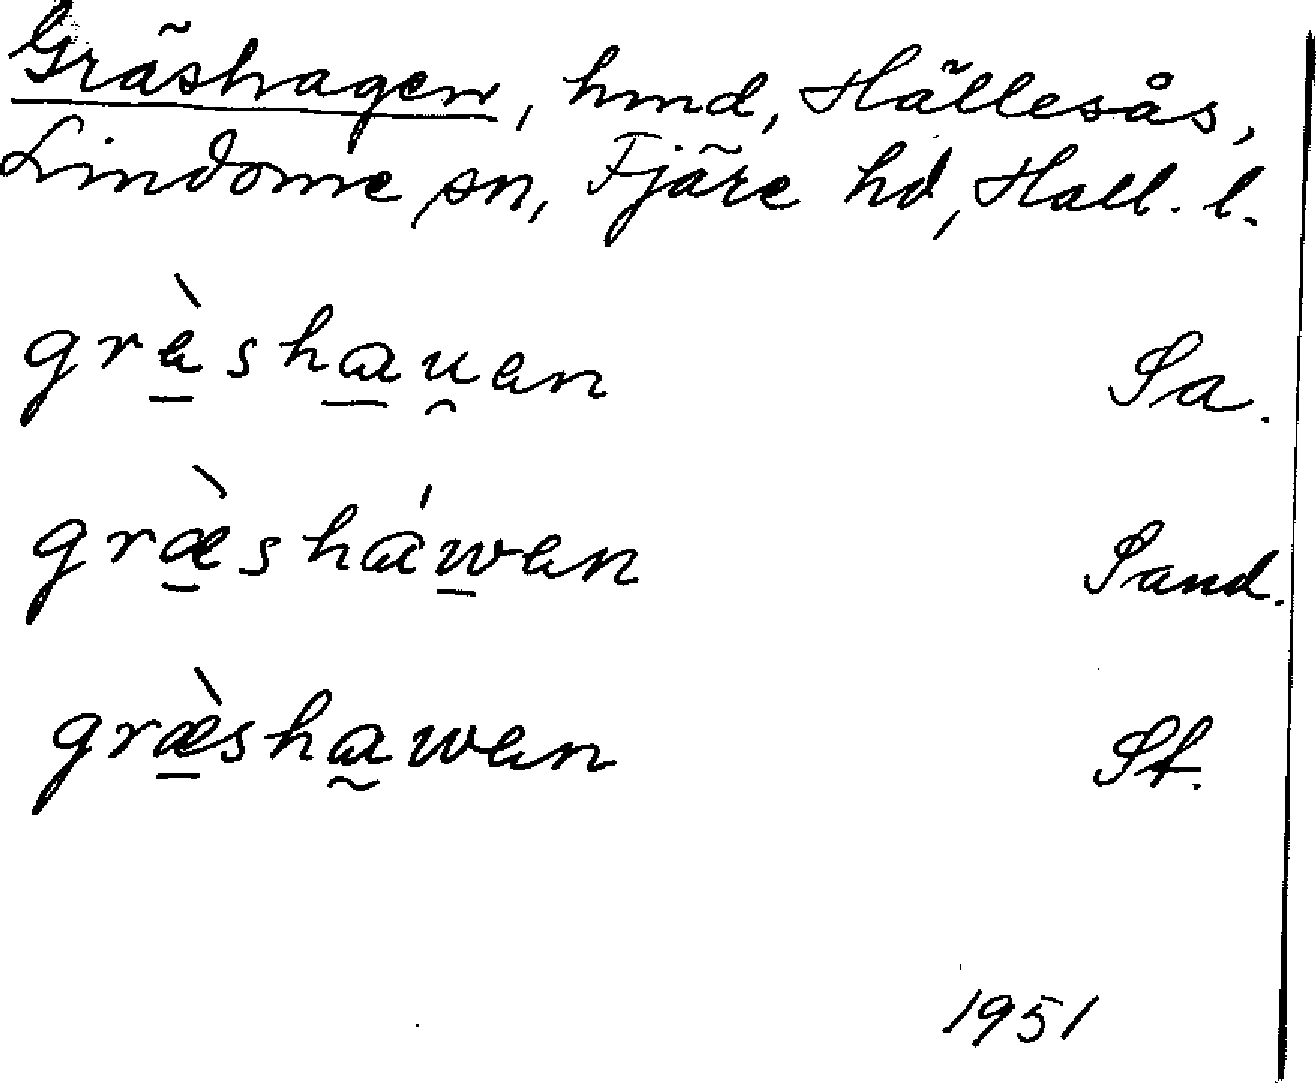 Gräshagen, hmd, Hällesås,
Lindome sn, Fjäre hd, Hall. l.
grèshau̯en Sa.
græ̀sháwen Sand.
græ̀sha̰wen St.
1951